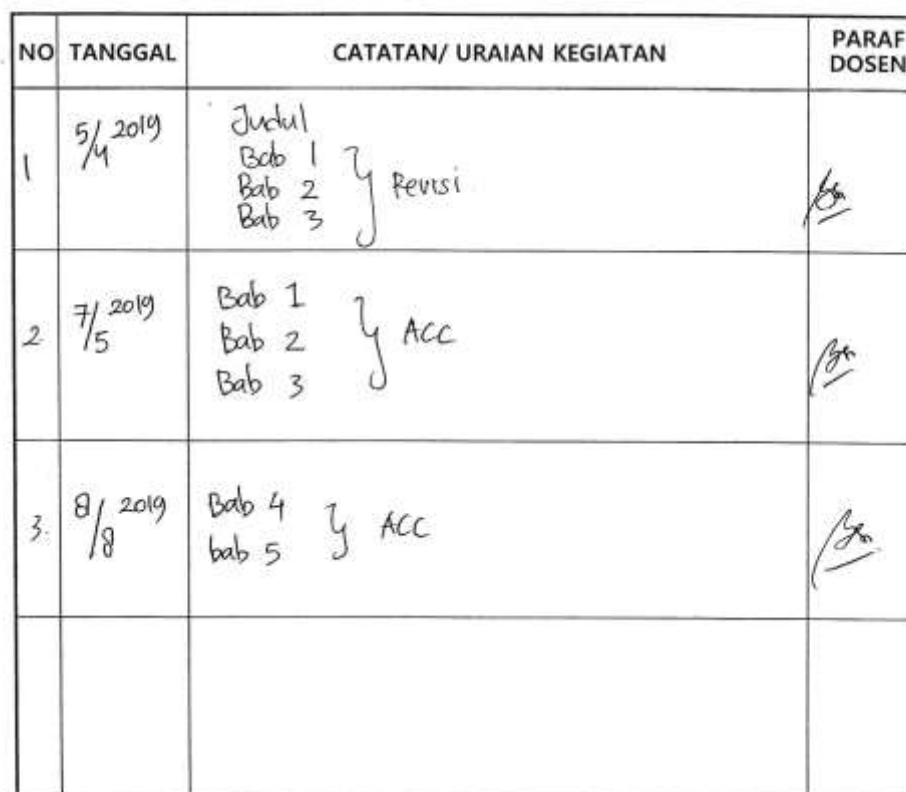 NO TANGGAL CATATAN/ URAIAN KEGIATAN PARAF DOSEN
1 5/4 2019 Judul
Bab 1
Bab 2 } Revisi
Bab 3
2 7/5 2019 Bab 1
Bab 2 } ACC
Bab 3
3. 8/8 2019 Bab 4
bab 5 } ACC